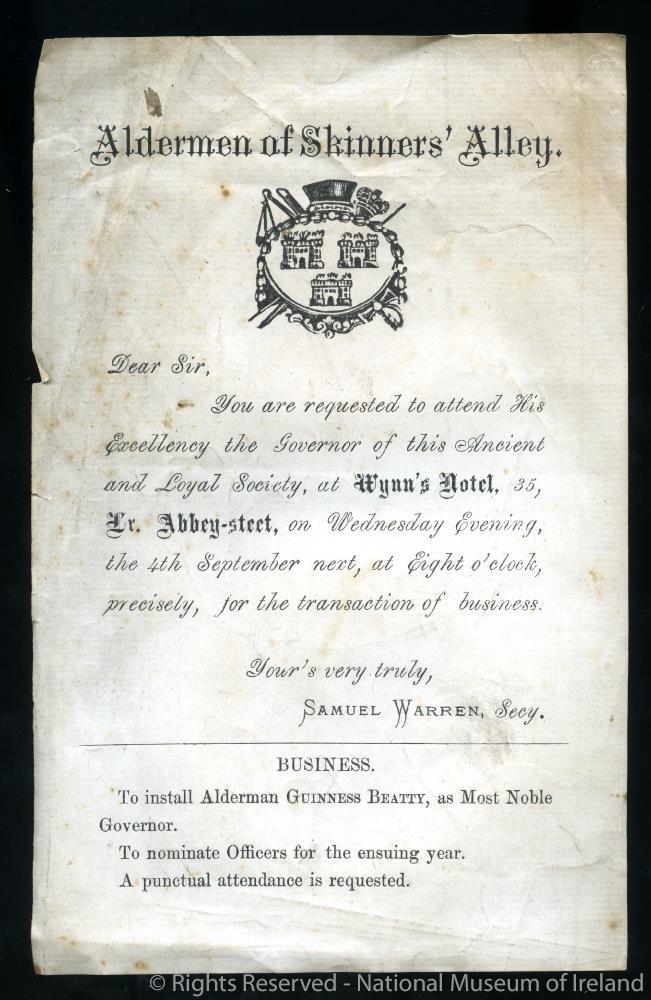 Aldermen of Skinners' Alley.
Dear Sir,
You are requested to attend His
Excellency the Governor of this Ancient
and Loyal Society, at Wynn's Hotel, 35,
Lr. Abbey-steet, on Wednesday Evening,
the 4th September next, at Eight o'clock,
precisely, for the transaction of business.
Your's very truly,
SAMUEL WARREN, Secy.
BUSINESS.
To install Alderman GUINNESS BEATTY, as Most Noble
Governor.
To nominate Officers for the ensuing year.
A punctual attendance is requested.
© Rights Reserved - National Museum of Ireland